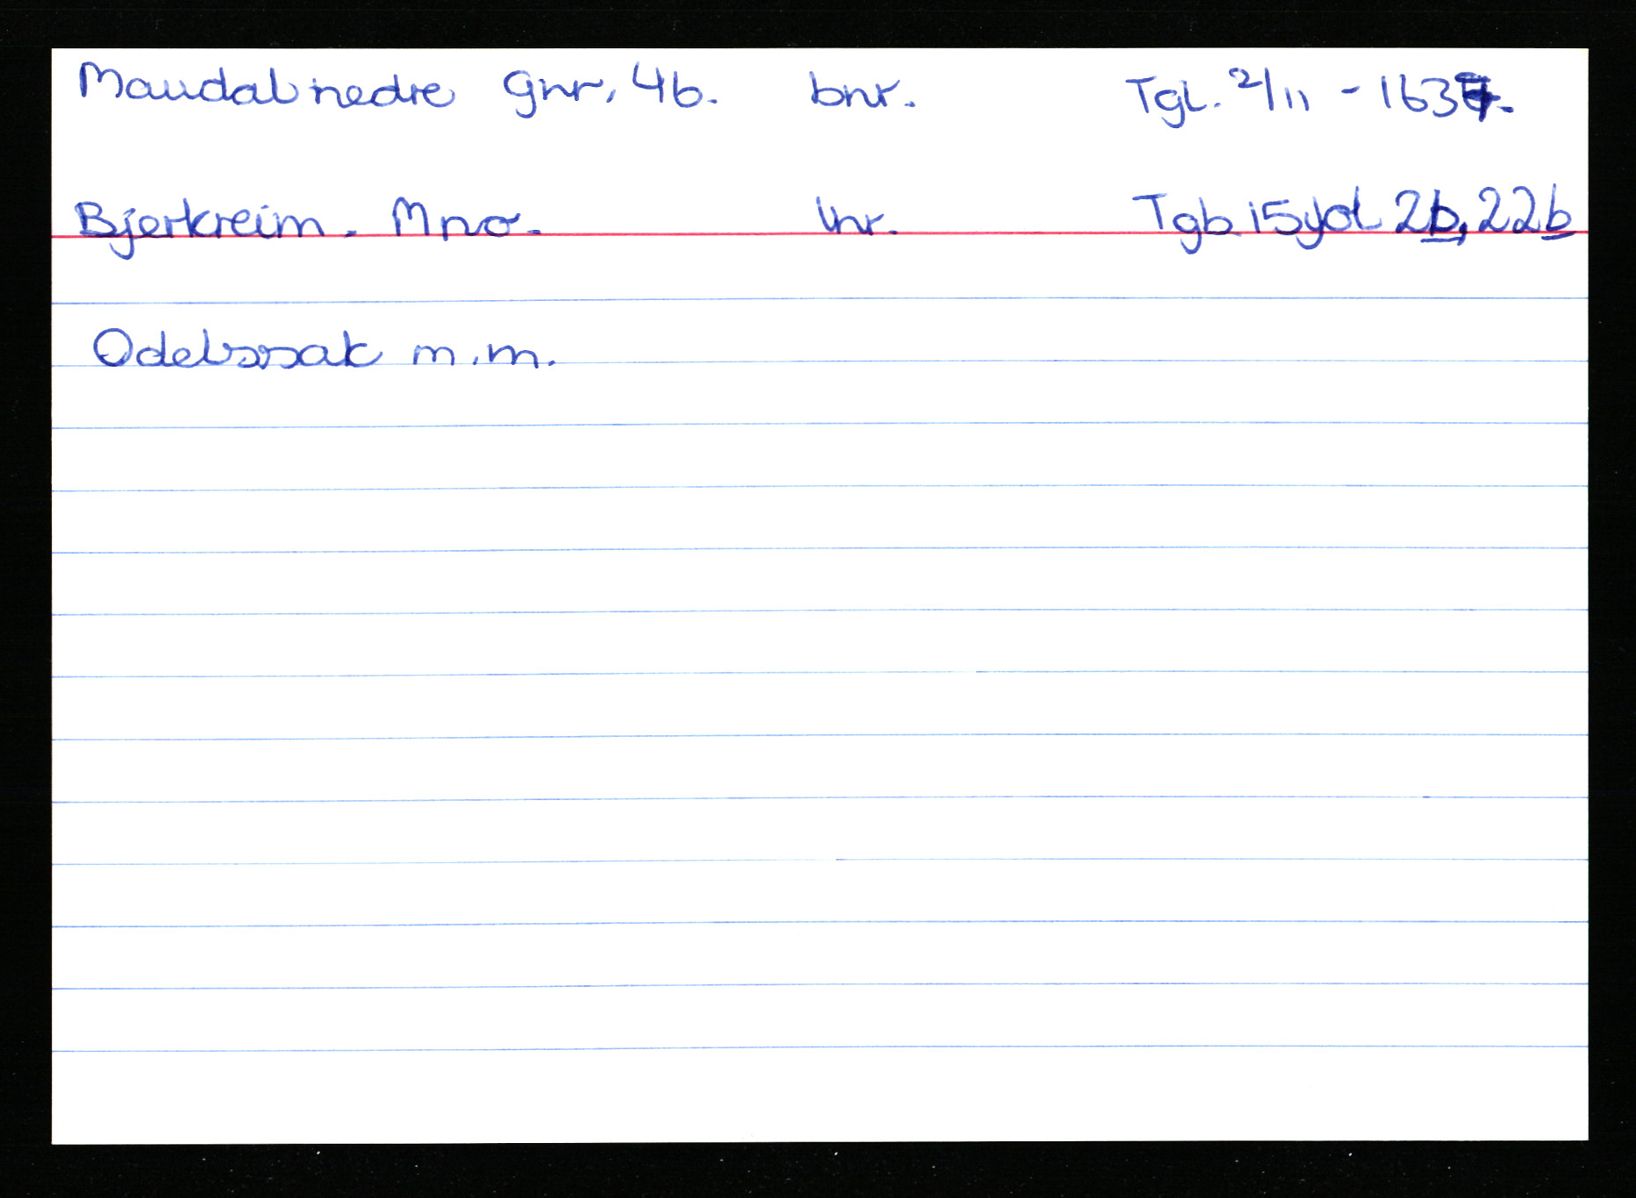 Maudal nedre gnr. 46. bnr. Tgl. 2/11 - 1637.
Bjerkreim. Mno. lnr. Tgb. 15 yol 2b, 22b
Odelssak m.m.